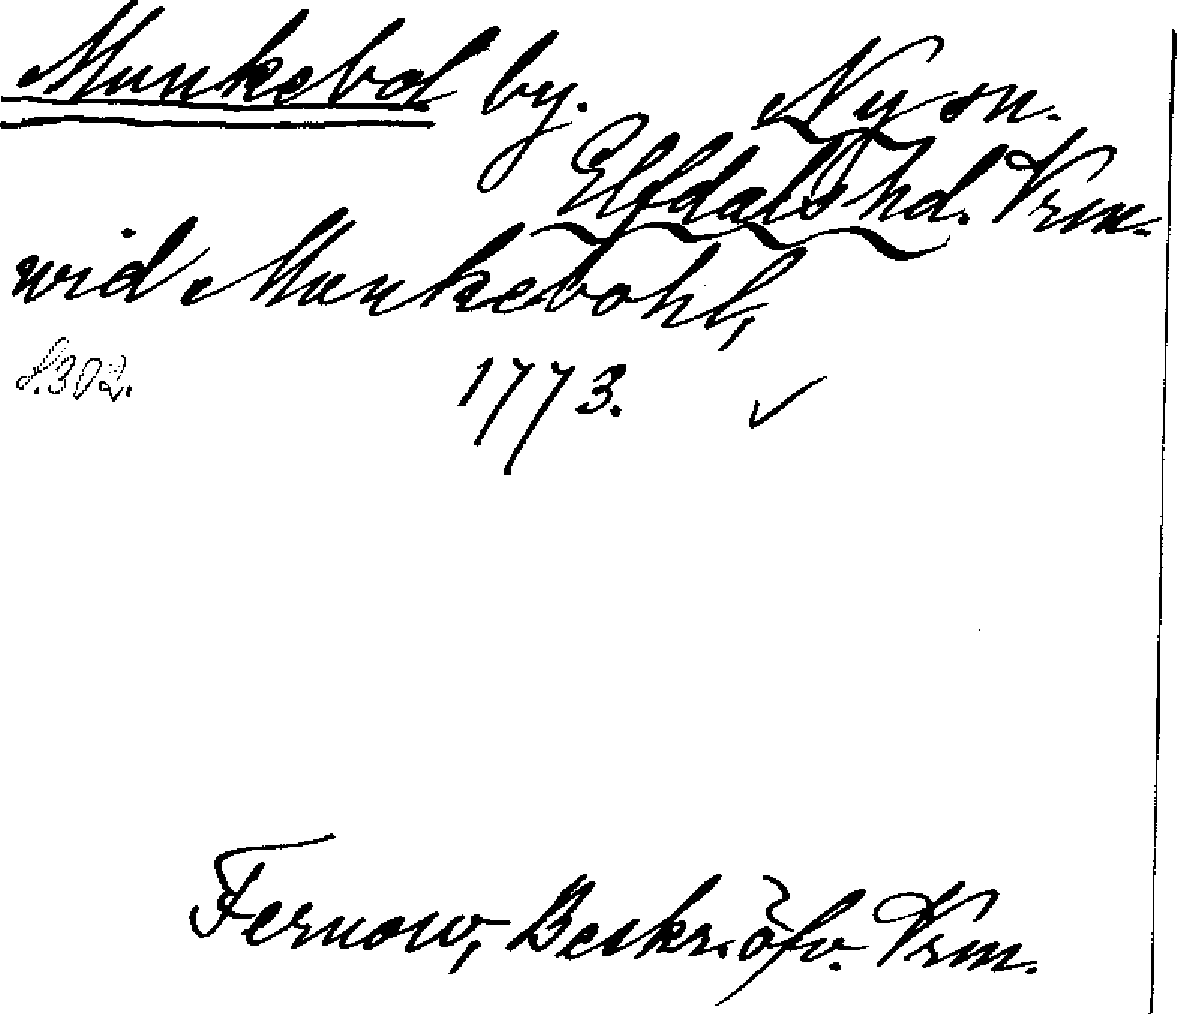 Munkebol by. Ny sn.
Elfdals hd. Vrm.
wid Munkebohl,
s. 302. 1773. ✓
Fernow, Beskr. öfv. Vrm.